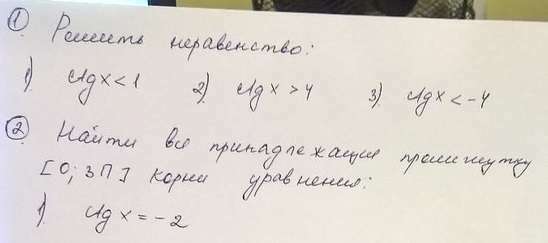 ① Решить неравенство:
1) ctg x < 1 2) ctg x > 4 3) ctg x < -4
② Найти все принадлежащие промежутку
[0; 3π] корни уравнения:
1) ctg x = -2